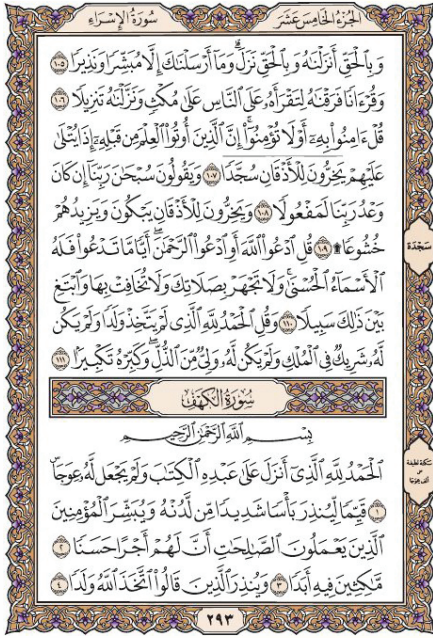 الجزء الخامس عشر
سورة الإسراء
وَبِٱلْحَقِّ أَنزَلْنَٰهُ وَبِٱلْحَقِّ نَزَلَۗ وَمَآ أَرْسَلْنَٰكَ إِلَّا مُبَشِّرًا وَنَذِيرًا ١٠٥
وَقُرْءَانًا فَرَقْنَٰهُ لِتَقْرَأَهُۥ عَلَى ٱلنَّاسِ عَلَىٰ مُكْثٍ وَنَزَّلْنَٰهُ تَنزِيلًا ١٠٦
قُلْ ءَامِنُوا۟ بِهِۦٓ أَوْ لَا تُؤْمِنُوٓا۟ۚ إِنَّ ٱلَّذِينَ أُوتُوا۟ ٱلْعِلْمَ مِن قَبْلِهِۦٓ إِذَا يُتْلَىٰ
عَلَيْهِمْ يَخِرُّونَ لِلْأَذْقَانِ سُجَّدًا ١٠٧ وَيَقُولُونَ سُبْحَٰنَ رَبِّنَآ إِن كَانَ
وَعْدُ رَبِّنَا لَمَفْعُولًا ١٠٨ وَيَخِرُّونَ لِلْأَذْقَانِ يَبْكُونَ وَيَزِيدُهُمْ
خُشُوعًا۩ ١٠٩ قُلِ ٱدْعُوا۟ ٱللَّهَ أَوِ ٱدْعُوا۟ ٱلرَّحْمَٰنَۖ أَيًّا مَّا تَدْعُوا۟ فَلَهُ
ٱلْأَسْمَآءُ ٱلْحُسْنَىٰۚ وَلَا تَجْهَرْ بِصَلَاتِكَ وَلَا تُخَافِتْ بِهَا وَٱبْتَغِ
بَيْنَ ذَٰلِكَ سَبِيلًا ١١٠ وَقُلِ ٱلْحَمْدُ لِلَّهِ ٱلَّذِى لَمْ يَتَّخِذْ وَلَدًا وَلَمْ يَكُن
لَّهُۥ شَرِيكٌ فِى ٱلْمُلْكِ وَلَمْ يَكُن لَّهُۥ وَلِىٌّ مِّنَ ٱلذُّلِّۖ وَكَبِّرْهُ تَكْبِيرًۢا ١١١
سورة الكهف
بِسْمِ ٱللَّهِ ٱلرَّحْمَٰنِ ٱلرَّحِيمِ
ٱلْحَمْدُ لِلَّهِ ٱلَّذِىٓ أَنزَلَ عَلَىٰ عَبْدِهِ ٱلْكِتَٰبَ وَلَمْ يَجْعَل لَّهُۥ عِوَجَاۜ
١ قَيِّمًا لِّيُنذِرَ بَأْسًا شَدِيدًا مِّن لَّدُنْهُ وَيُبَشِّرَ ٱلْمُؤْمِنِينَ
ٱلَّذِينَ يَعْمَلُونَ ٱلصَّٰلِحَٰتِ أَنَّ لَهُمْ أَجْرًا حَسَنًا ٢
مَّٰكِثِينَ فِيهِ أَبَدًا ٣ وَيُنذِرَ ٱلَّذِينَ قَالُوا۟ ٱتَّخَذَ ٱللَّهُ وَلَدًا ٤
سَجْدَة
سكتة لطيفة
على
ألف عوجا
٢٩٣